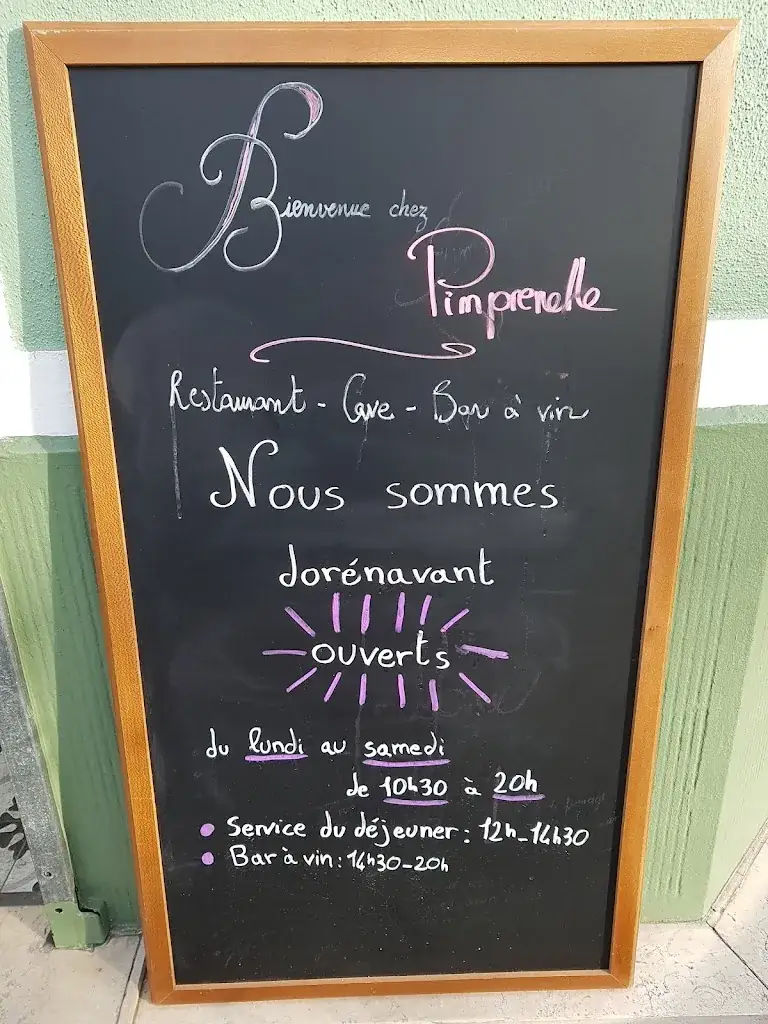 Bienvenue chez
Pimprenelle
Restaurant - Cave - Bar à vin
Nous sommes
dorénavant
ouverts
du lundi au samedi
de 10h30 à 20h
• Service du déjeuner : 12h-14h30
• Bar à vin : 14h30-20h